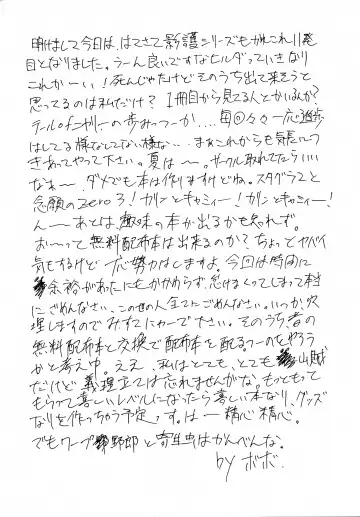 明けまして今日は、はてさて影護シリーズもかれこれ11発
目となりました。うーん良いですなヒルダっていきなり
これかーい!死んじゃたけどそのうち出て来そうと
思ってるのは私だけ?1冊目から見てる人とかいるんか?
テールofニャリーの歩みっつーか…毎回々々一応進歩
はしてる様なしてない様な…まぁこれからも気長につ
きあってやって下さい。夏は〜。サークル取れてたらいい
なぁ〜。ダメでも本は作りますけどね。スタグラ2と
念願のZero3!ガツンとキャミィー!ガツンとキャミィー!
んーあとは、趣味の本が出るかも知れず。
お〜って無料配布本は出来るのか?ちょっとヤバイ
気もするけど一応努力はしますよ。今回は時間に
余裕があったにもかかわらず、怠けまくってしまって本当
にごめんなさい、この世の人全てにごめんなさい。いつか穴
埋しますのでみすてにゃーで下さい。そのうち、君の
無料配布本と交換で配布本を配るつーのをやろう
かと考え中。ええ、私はとても、とても山賊
だけど義理立ては忘れませんがな。もっともって
もらって喜しいレベルになったら喜しい本なり、グッズ
なりを作っちゃう予定っす。はー精心精心。
でもワープ野郎と寄生虫はかんべんな。
by ボボ.